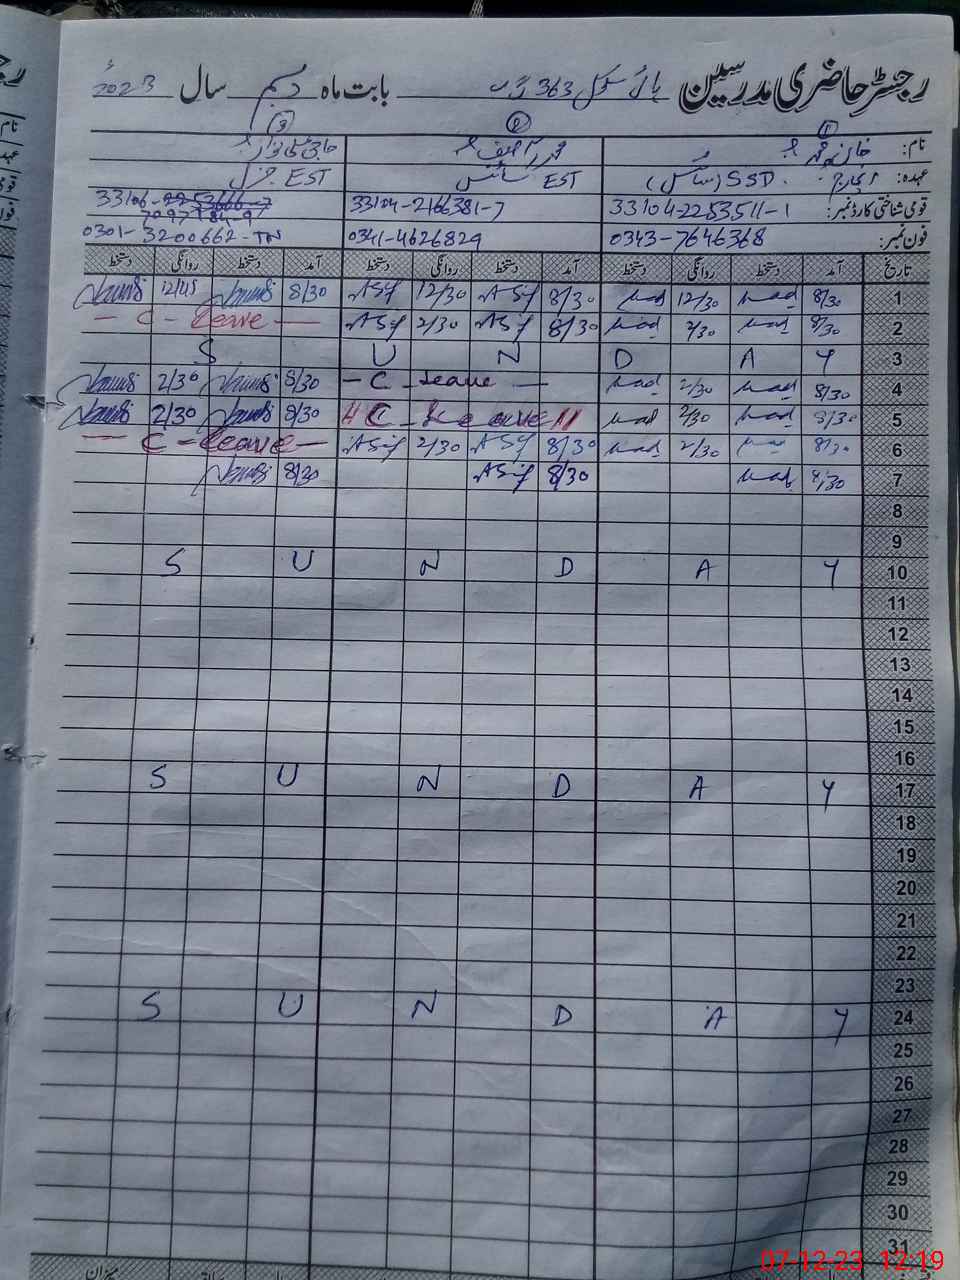 رجسٹر حاضری مدرسین ہائی سکول 363 گ ب بابت ماہ دسمبر سال 2023ء
① ② ③
نام: خان محمد
عہدہ: انچارج SSD (سائنس) EST سائنس EST جنرل
قومی شناختی کارڈ نمبر: 33104-2253511-1 33104-2166381-7 33106-
7097184-9
فون نمبر: 0343-7646368 0341-4626829 0301-3200662-TN
تاریخ آمد دستخط روانگی دستخط آمد دستخط روانگی دستخط آمد دستخط روانگی دستخط
1 8/30 12/30 8/30 Asif 12/30 Asif 8/30 12/45
2 8/30 2/30 8/30 Asif 2/30 Asif — C - Leave —
3 S U N D A Y
4 8/30 2/30 - C - Leave - 8/30 2/30
5 8/30 2/30 11 C - Leave 11 8/30 2/30
6 8/30 2/30 8/30 Asif 2/30 Asif — C - Leave —
7 8/30 8/30 Asif 8/30
8
9
10 S U N D A Y
11
12
13
14
15
16
17 S U N D A Y
18
19
20
21
22
23
24 S U N D A Y
25
26
27
28
29
30
31
میزان
07-12-23 12:19